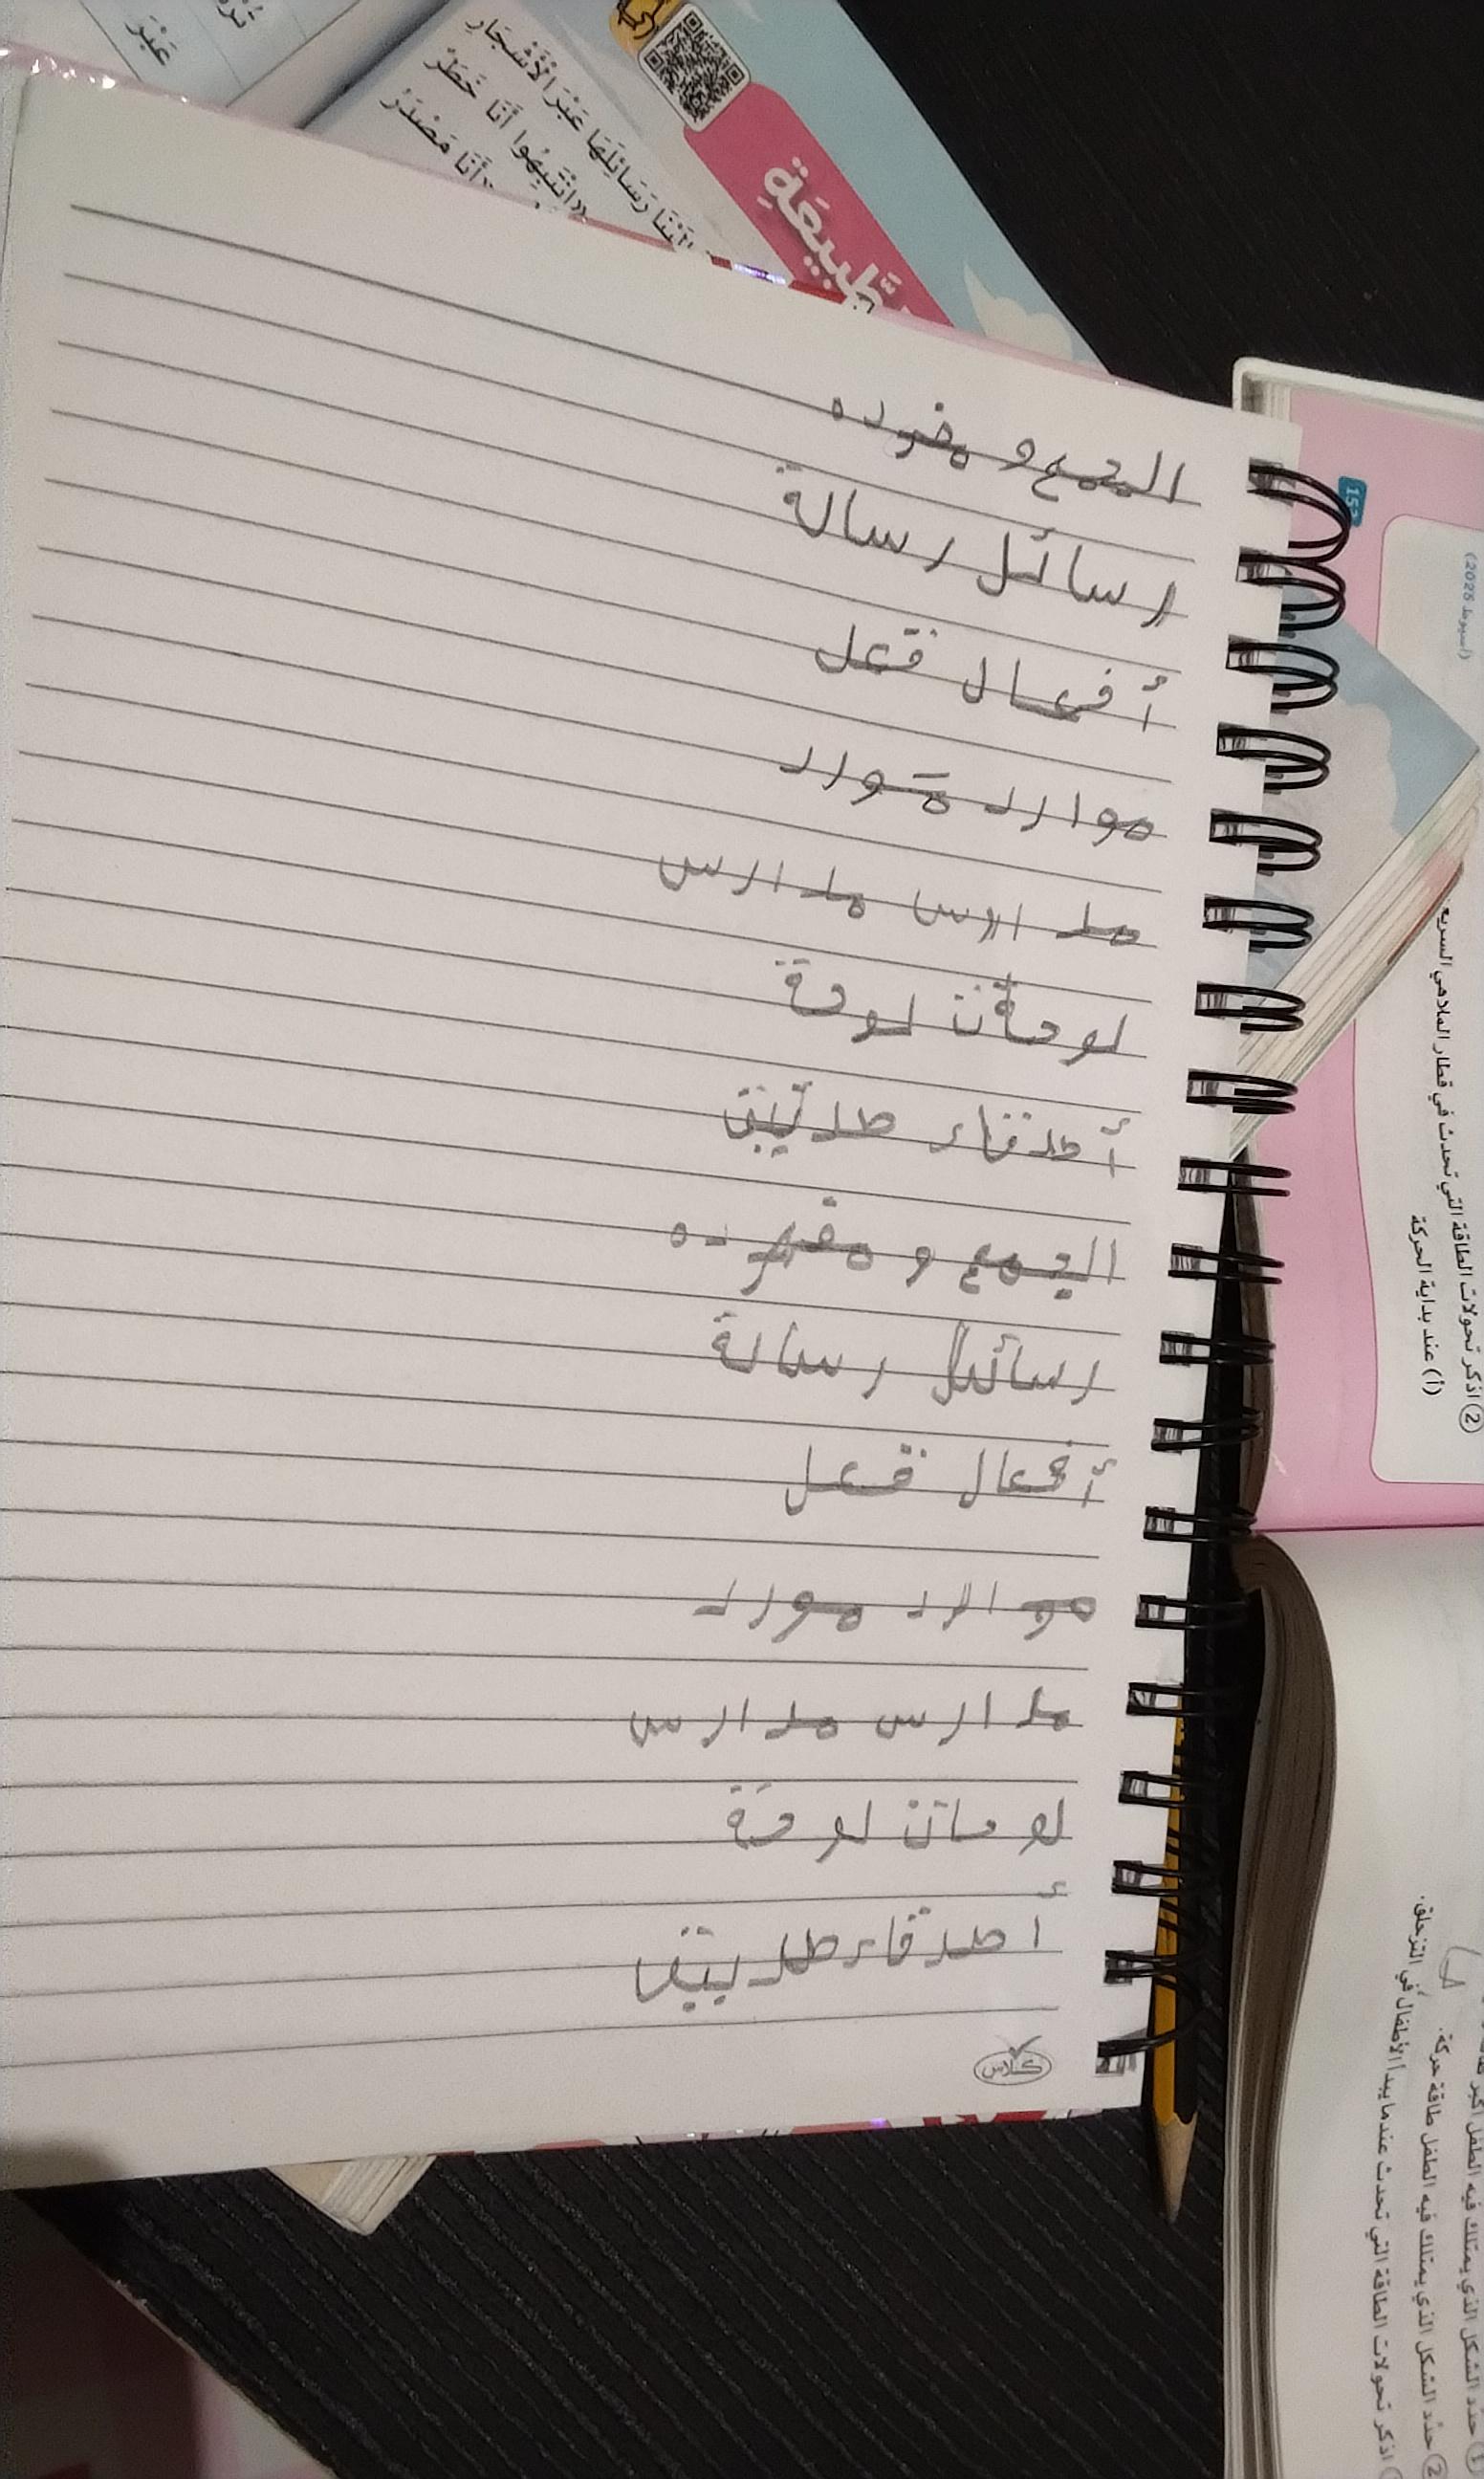 الجمع و مفرده
رسائل رسالة
أفعال فعل
موارد مورد
مدارس مدارس
لوحات لوحة
أصدقاء صديق
الجمع و مفرده
رسائل رسالة
أفعال فعل
موارد مورد
مدارس مدارس
لوحات لوحة
أصدقاء صديق
كلاس
رَسَائِلَهَا عَبْرَ الْأَشْجَارِ
«انْتَبِهُوا أَنَا خَطَرٌ
«أَنَا مَصْدَرُ
عَبْرَ
(أسيوط 2025)
② اذكر تحولات الطاقة التي تحدث في قطار الملاهي السريع
(أ) عند بداية الحركة
حدد الشكل الذي يمتلك فيه الطفل أكبر
② حدد الشكل الذي يمتلك فيه الطفل طاقة حركة.
اذكر تحولات الطاقة التي تحدث عندما يبدأ الأطفال في التزحلق.